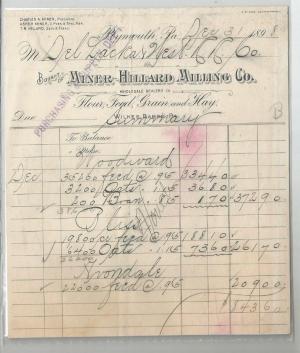 CHARLES A. MINER, President.
ASHER MINER, V. Pres & Treas.
T. R. HILLARD, Sec'y
Plymouth, Pa. Dec 31 1898
M Del Lacka & West. R. R. Co
Bought of
MINER-HILLARD MILLING CO.
WHOLESALE DEALERS IN
Flour, Feed, Grain and Hay.
WILKES-BARRE
Due Summary
B
To Balance
Woodward
Dec 35200 feed @ .95 334 40
3200 Oats 1.15 36 80
200 Bran .85 1 70 372 90
19800 feed @ .95 188 10
6400 Oats 1.15 73 60 261 70
Avondale
22000 feed @ .95 209 00
843 60